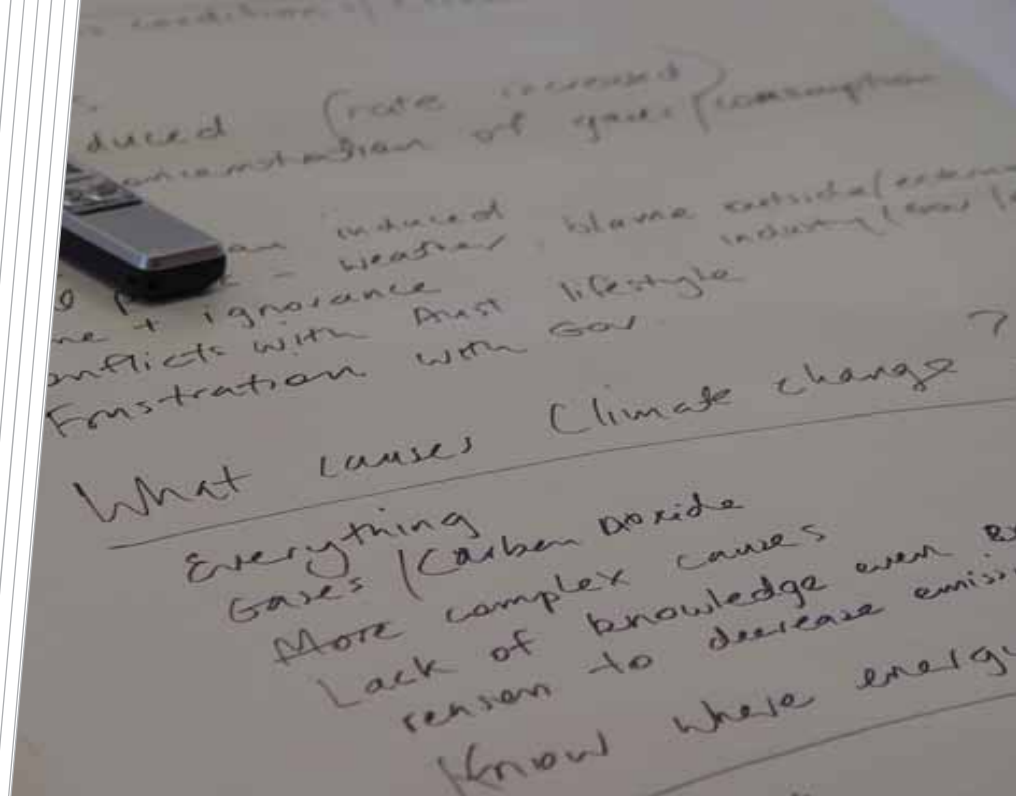 condition of
s
duced (rate increased)
concentration of gases/consumption
an induced
- weather, blame outside/extern
industry/Gov
me + ignorance
onflicts with Aust lifestyle
Frustration with Gov.
What causes Climate change?
Everything
Gases/Carbon Dioxide
More complex causes
Lack of knowledge even
reason to decrease emissi
Know where energy